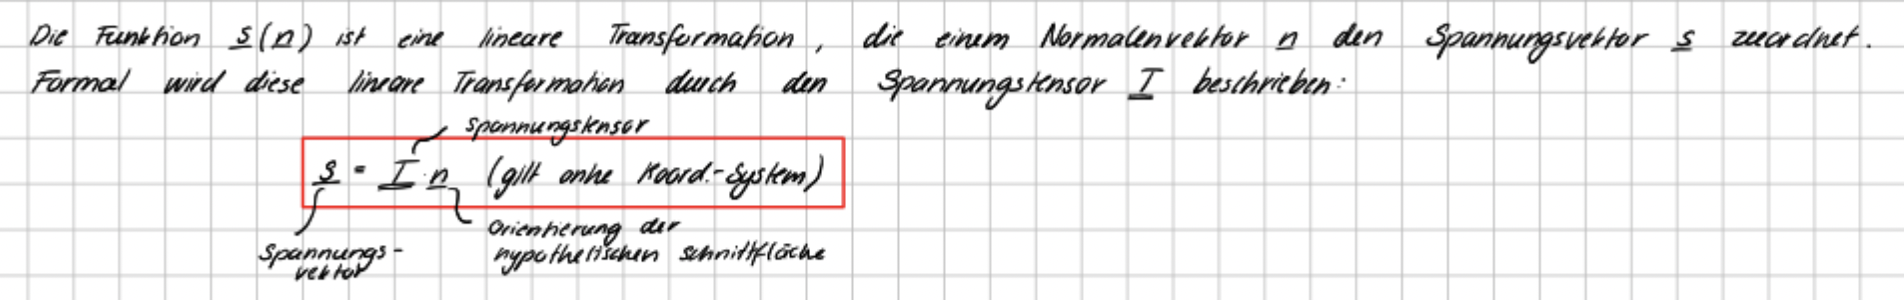 Die Funktion s(n) ist eine lineare Transformation, die einem Normalenvektor n den Spannungsvektor s zuordnet.
Formal wird diese lineare Transformation durch den Spannungstensor T beschrieben:
Spannungstensor
s = T n (gilt onhe Koord.-System)
Orientierung der
hypothetischen Schnittfläche
Spannungs-
vektor